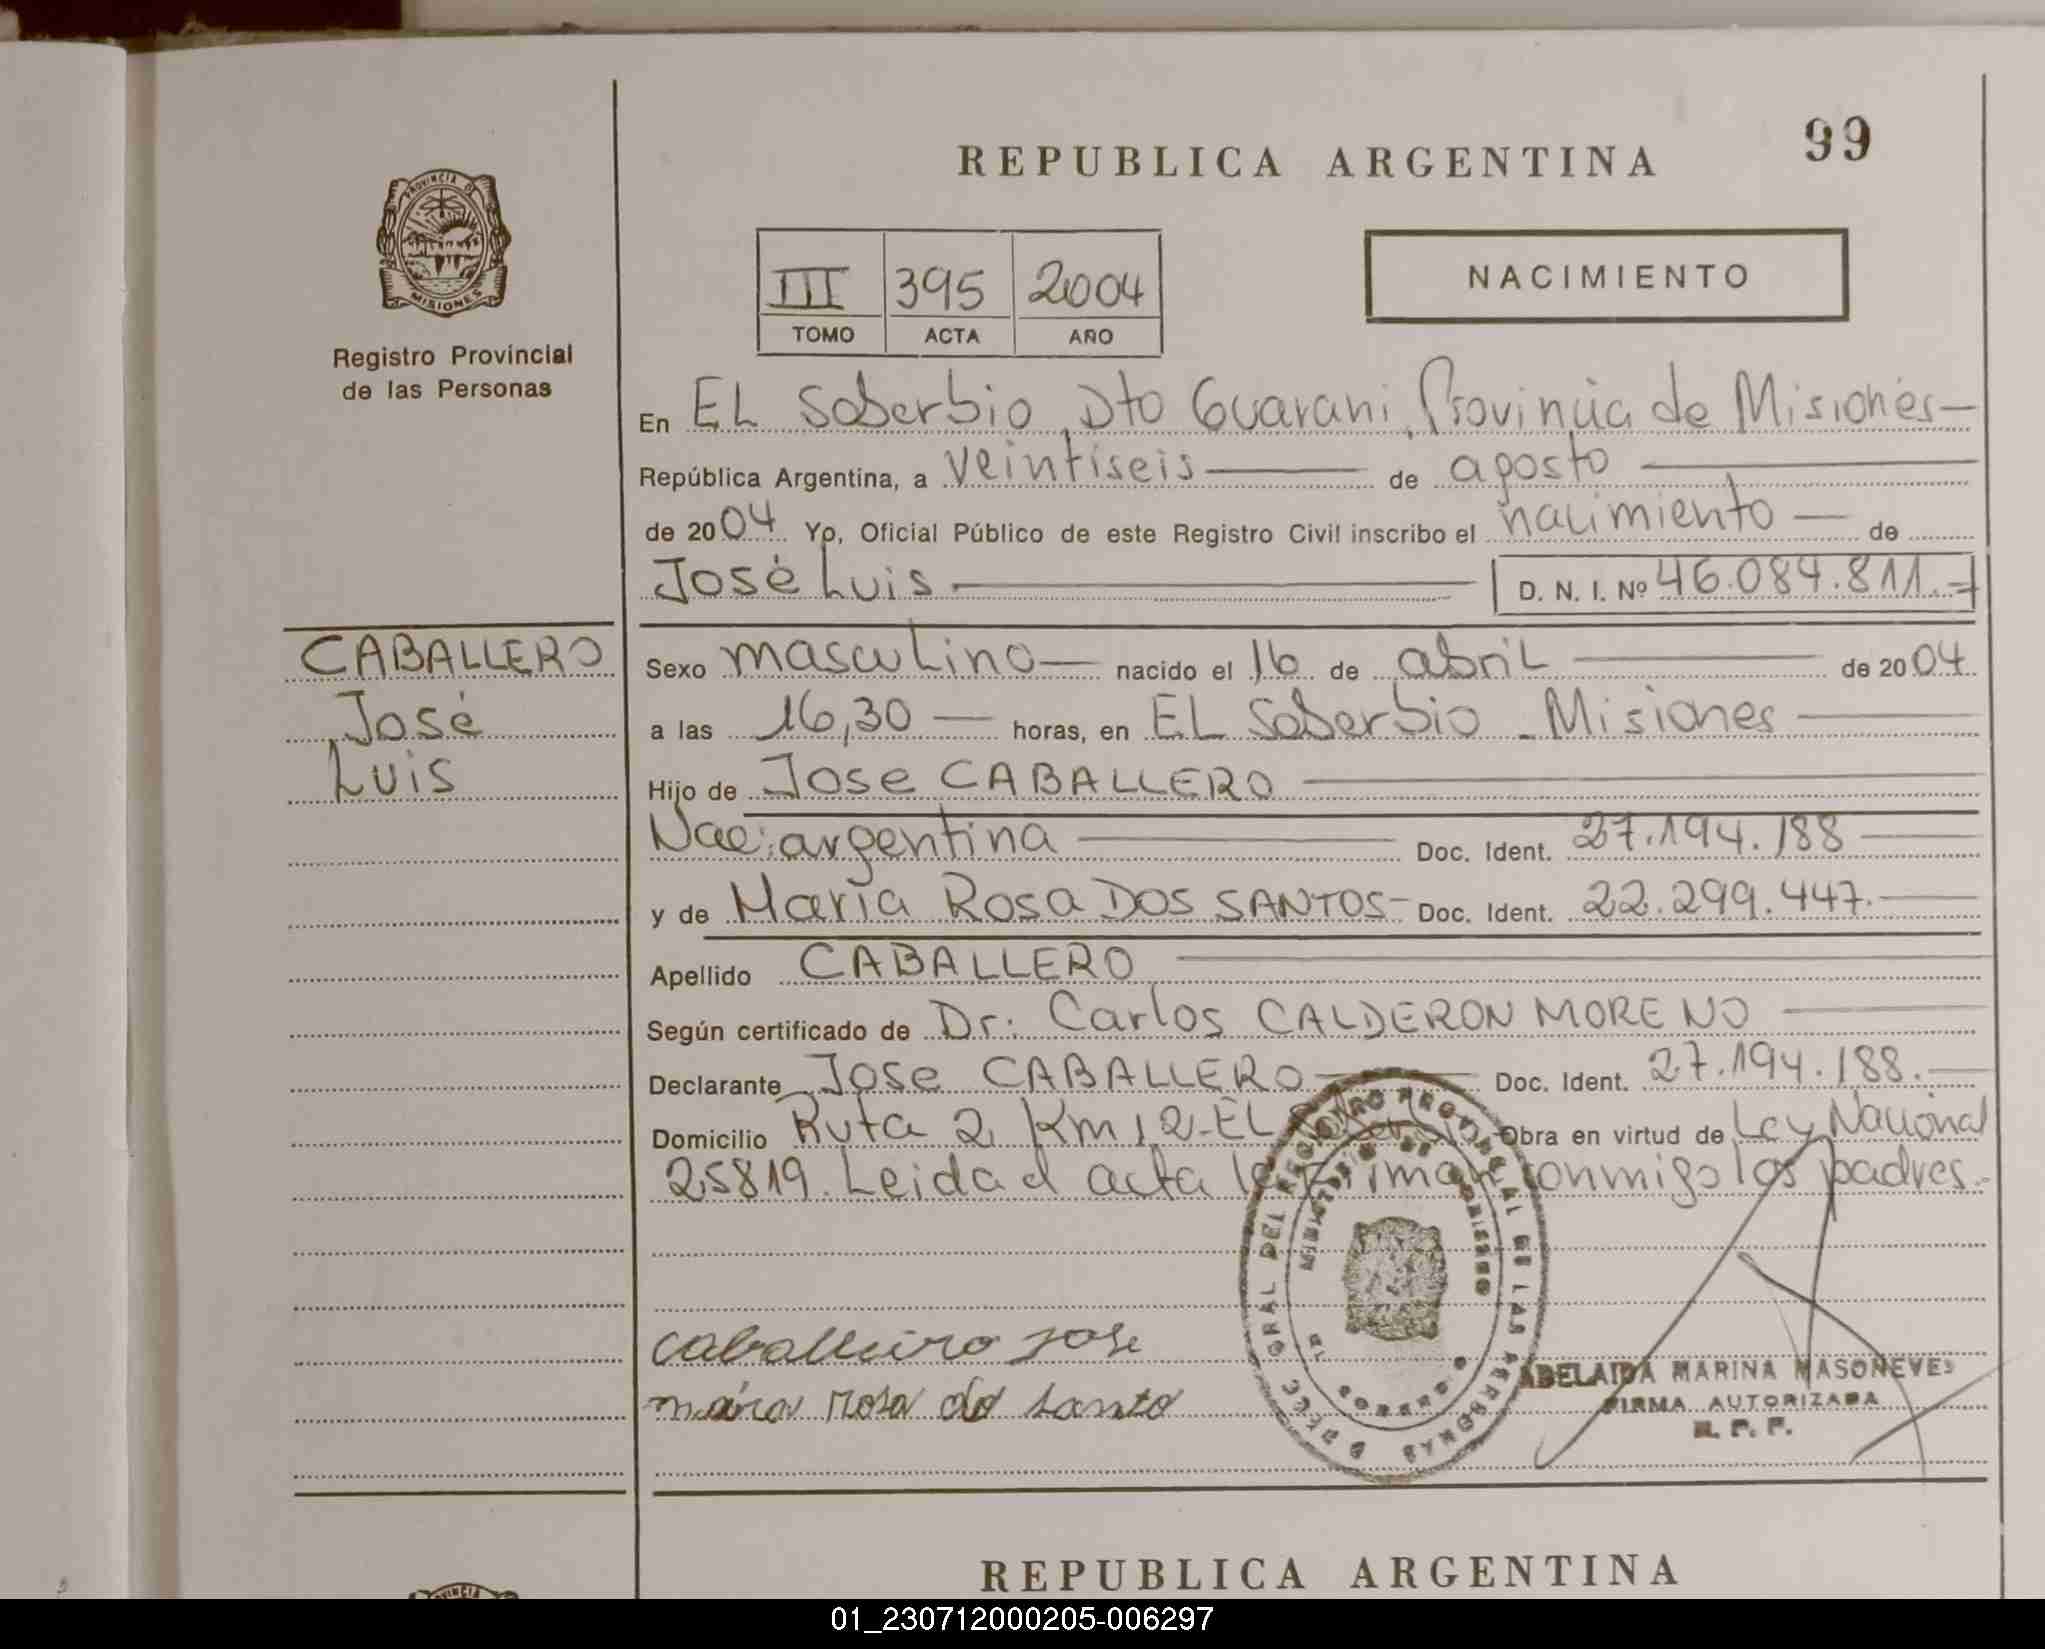 99
REPUBLICA ARGENTINA
PROVINCIA DE
MISIONES
Registro Provincial
de las Personas
III 395 2004
TOMO ACTA AÑO
NACIMIENTO
En EL Soberbio, Dto Guarani, Provincia de Misiones—
República Argentina, a veintiseis — de agosto —
de 2004 Yo, Oficial Público de este Registro Civil inscribo el nacimiento — de
José Luis — D. N. I. Nº 46.084.811.-
CABALLERO
José
Luis
Sexo masculino — nacido el 16 de abril — de 2004
a las 16,30 — horas, en EL Soberbio - Misiones —
Hijo de Jose CABALLERO —
Nac: argentina — Doc. Ident. 27.194.188 —
y de Maria Rosa DOS SANTOS- Doc. Ident. 22.299.447.—
Apellido CABALLERO —
Según certificado de Dr. Carlos CALDERON MORENO —
Declarante Jose CABALLERO — Doc. Ident. 27.194.188.—
Domicilio Ruta 2, Km 12-EL Soberbio Obra en virtud de Ley Nacional
25819. Leida el acta la firman conmigo los padres.-
caballeiro Jose
maria rosa do santo
DEL REGISTRO PROVINCIAL DE LAS PERSONAS
MINISTERIO DE GOBIERNO
ADELAIDA MARINA MASONEVES
FIRMA AUTORIZADA
R. P. P.
REPUBLICA ARGENTINA
01_230712000205-006297